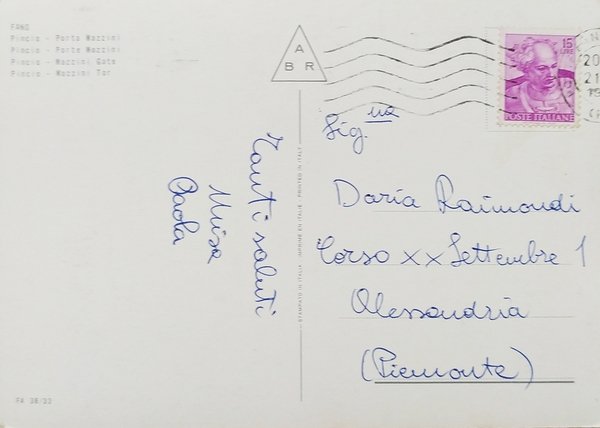 FANO
Pincio - Porta Mazzini
Pincio - Porte Mazzini
Pincio - Mazzini Gate
Pincio - Mazzini Tor
A
B R
15
LIRE
POSTE ITALIANE
20
21
Tanti saluti
Paola
STAMPATO IN ITALIA - IMPRIMÉ EN ITALIE - PRINTED IN ITALY
Sig.na
Daria Raimondi
Corso XX Settembre 1
Alessandria
(Piemonte)